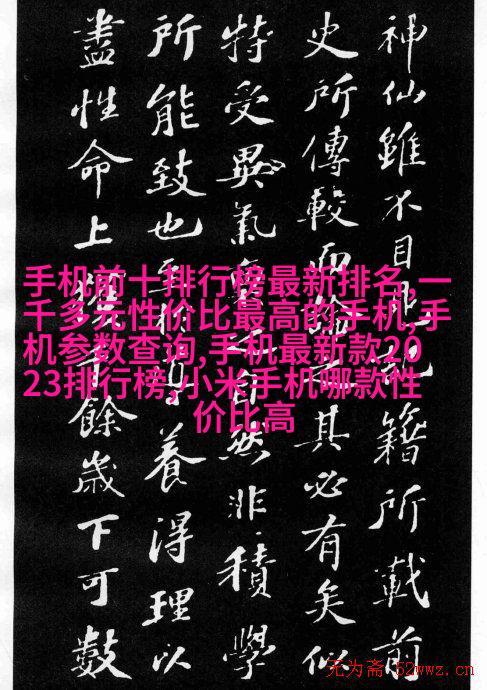 手机前十排行榜最新排名,一
千多元性价比最高的手机,手
机参数查询,手机最新款20
23排行榜,小米手机哪款性
价比高
神仙雖不目籍所載前
史所傳較而其必有矣似
特受異氣自然非積學
所能致也至於養得理以
盡性命上獲餘歲下可數
无为斋·52wwz.cn